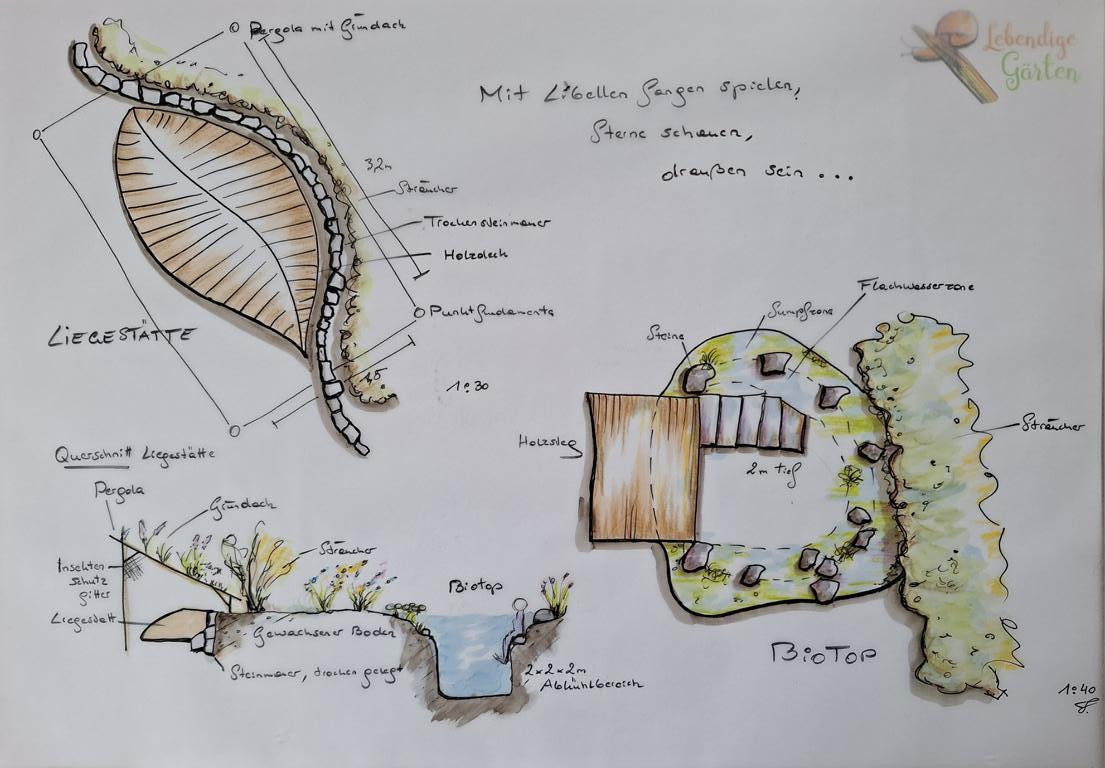 Pergola mit Gründach
Lebendige
Gärten
Mit Libellen fangen spielen,
Sterne schauen,
draußen sein ...
3,2m
Sträucher
Trockensteinmauer
Holzdeck
Punktfundamente
LIEGESTÄTTE
1,5
1:30
Querschnitt Liegestätte
Pergola
Gründach
Sträucher
Insekten
schutz
gitter
Biotop
Gewachsener Boden
Steinmauer, drocken gelegt
2x2x2m
Abkühlbereich
Flachwasserzone
Sumpfzone
Steine
Sträucher
Holzsteg
2m tief
BIOTOP
1:40